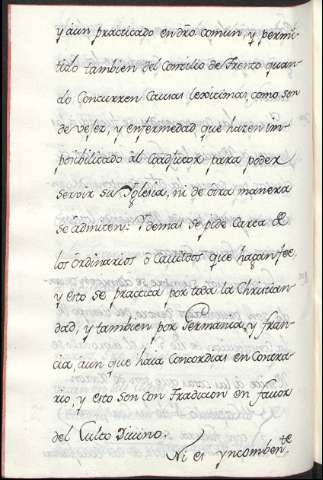 y aun practicado en dro comun, y permi-
tido tambien del Concilio de Trento quan-
do Concurren Causas lexitimas, como son
de vejez, y enfermedad que hazen im-
posibilitado al Coadjutor para poder
servir su Yglesia, ni de otra manera
se admiten: Y demas se pide Carta de
los ordinarios o Cavildos que hagan fee,
y esto se practica por toda la Christian-
dad, y tambien por Germania, y fran-
cia, aun que haia Concordias en Contra-
rio, y esto son con Tradicion en favor
del Culto Divino.
Ni es yncombente